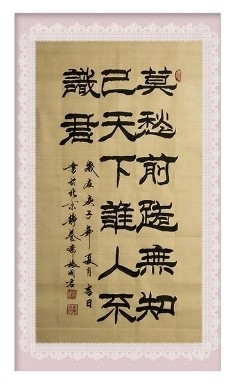 莫愁前路無知
己天下誰人不
識君
歲在庚子年夏月吉日
書於北京靜